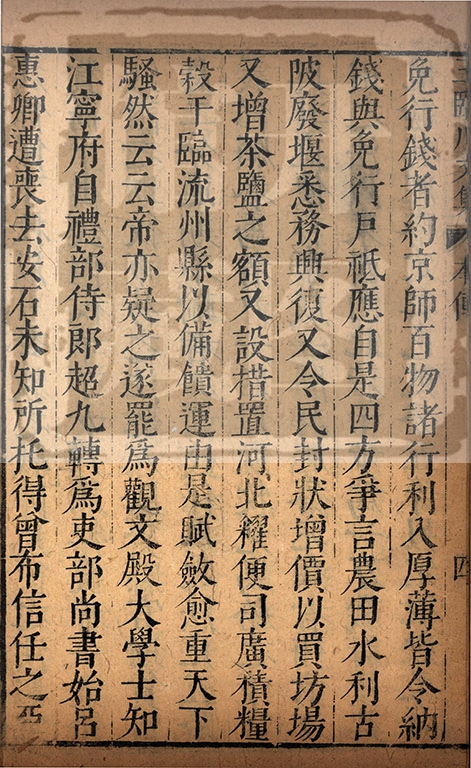 免行錢者約京師百物諸行利入厚薄皆令納
錢與免行戸祗應自是四方爭言農田水利古
陂廢堰悉務興復又令民封狀增價以買坊場
又增茶鹽之額又設措置河北糴便司廣積糧
穀于臨流州縣以備饋運由是賦斂愈重天下
騷然云云帝亦疑之遂罷爲觀文殿大學士知
江寧府自禮部侍郎超九轉爲吏部尚書始呂
惠卿遭喪去安石未知所托得曾布信任之